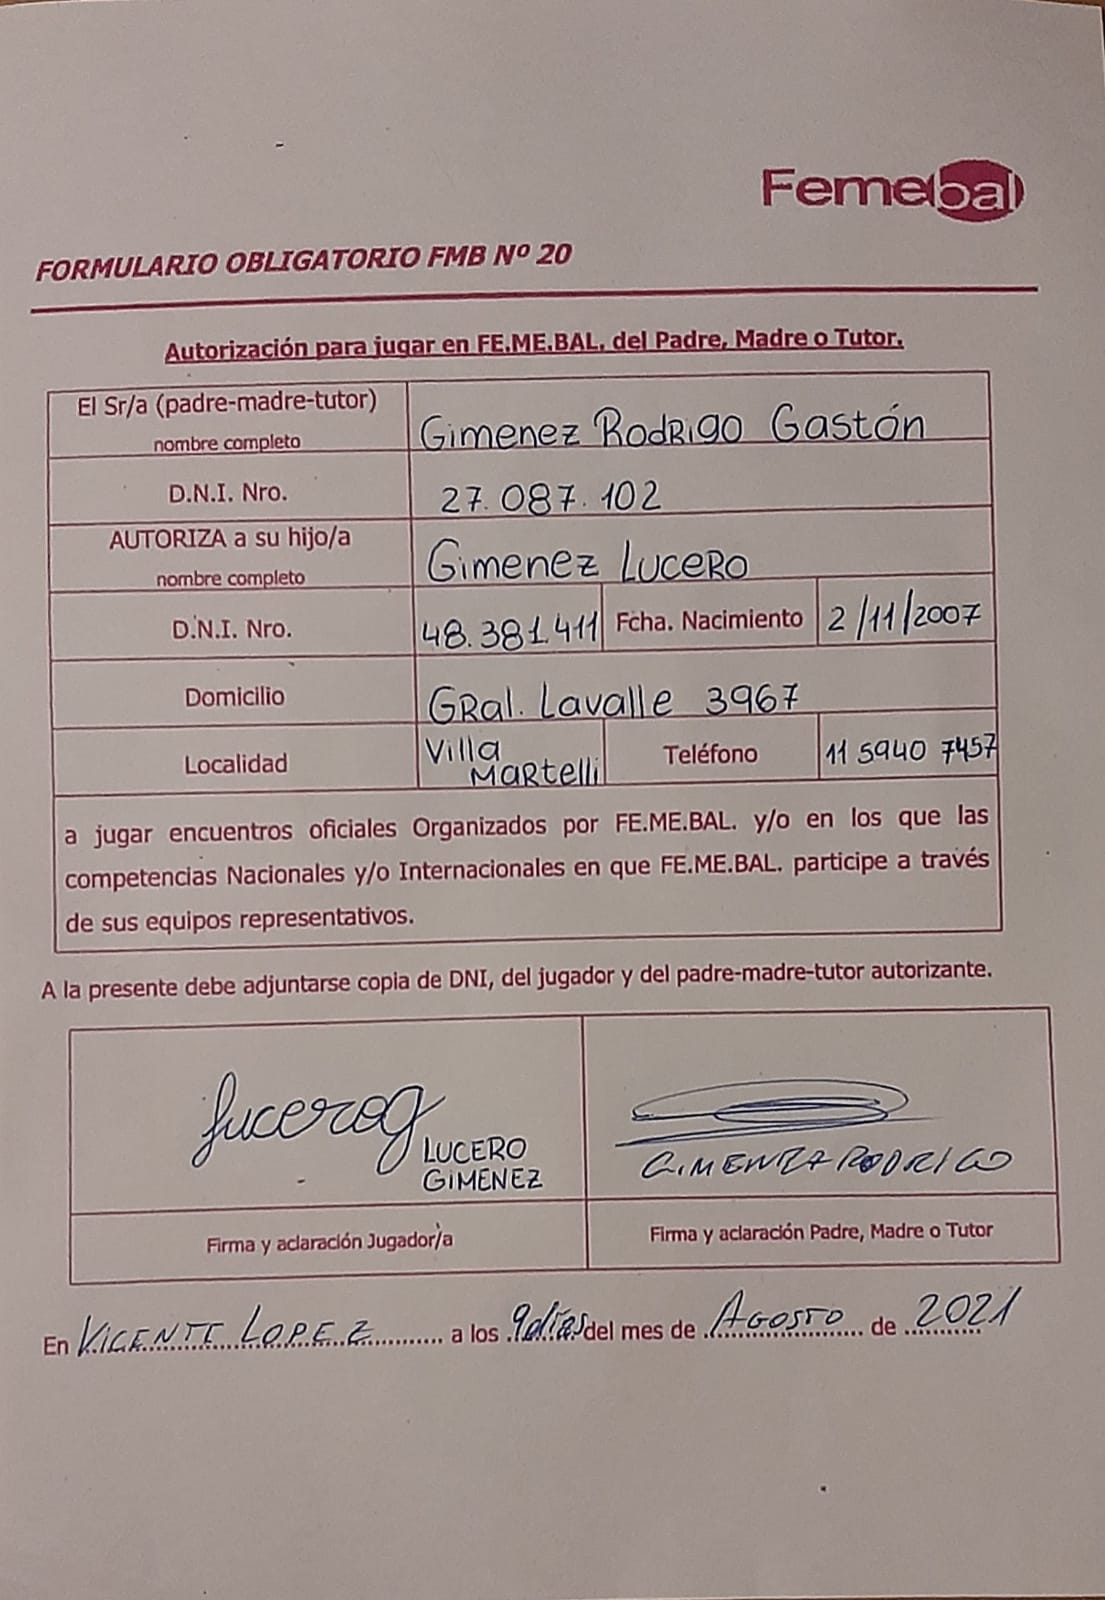 Femebal
FORMULARIO OBLIGATORIO FMB Nº 20
Autorización para jugar en FE.ME.BAL. del Padre, Madre o Tutor.
El Sr/a (padre-madre-tutor)
nombre completo
Gimenez Rodrigo Gastón
D.N.I. Nro.
27.087.102
AUTORIZA a su hijo/a
nombre completo
Gimenez Lucero
D.N.I. Nro.
48.381.411
Fcha. Nacimiento
2/11/2007
Domicilio
GRal. Lavalle 3967
Localidad
Villa
Martelli
Teléfono
11 5940 7457
a jugar encuentros oficiales Organizados por FE.ME.BAL. y/o en los que las
competencias Nacionales y/o Internacionales en que FE.ME.BAL. participe a través
de sus equipos representativos.
A la presente debe adjuntarse copia de DNI, del jugador y del padre-madre-tutor autorizante.
Lucero g
LUCERO
GIMENEZ
GIMENEZ RODRIGO
Firma y aclaración Jugador/a
Firma y aclaración Padre, Madre o Tutor
En VICENTE LOPEZ a los 9 días del mes de AGOSTO de 2021